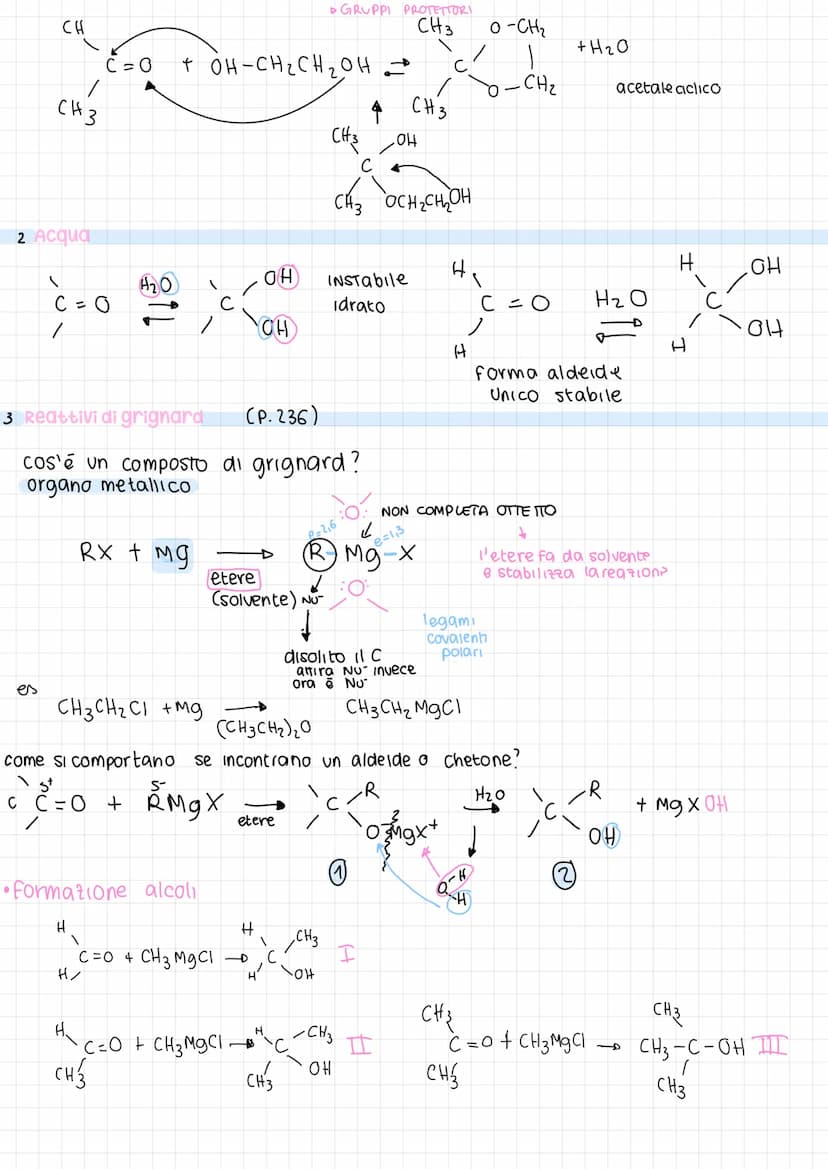 ▹ GRUPPI PROTETTORI
CH CH3 O-CH2
C=O + OH-CH2CH2OH ⇌ C | + H2O
CH3 CH3 O-CH2 acetale ciclico
CH3 OH
C
CH3 OCH2CH2OH
2 Acqua
C=O H2O ⇌ C OH OH INSTABILE
idrato
H C=O H H2O ⇌ H C OH H OH
forma aldeide
unico stabile
3 Reattivi di grignard (P. 236)
cos'è un composto di grignard?
organo metallico
:O: NON COMPLETA OTTETTO
P=2,6 e=1,3
RX + Mg → R-Mg-X
etere
(solvente) NU-
:O:
l'etere fa da solvente
e stabilizza la reazione
legami
covalenti
polari
disolito il C
attira NU- invece
ora è NU-
es
CH3CH2Cl + Mg → CH3CH2MgCl
(CH3CH2)2O
come si comportano se incontrano un aldeide o chetone?
δ+ δ-
C C=O + RMgX → C R O-MgX+ H2O → C R OH + MgXOH
etere
O-H
H
1 2
•Formazione alcoli
H C=O H + CH3MgCl → H C CH3 H OH I
H C=O CH3 + CH3MgCl → H C CH3 CH3 OH II
CH3 C=O CH3 + CH3MgCl → CH3 CH3-C-OH CH3 III